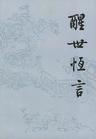 醒世恆言